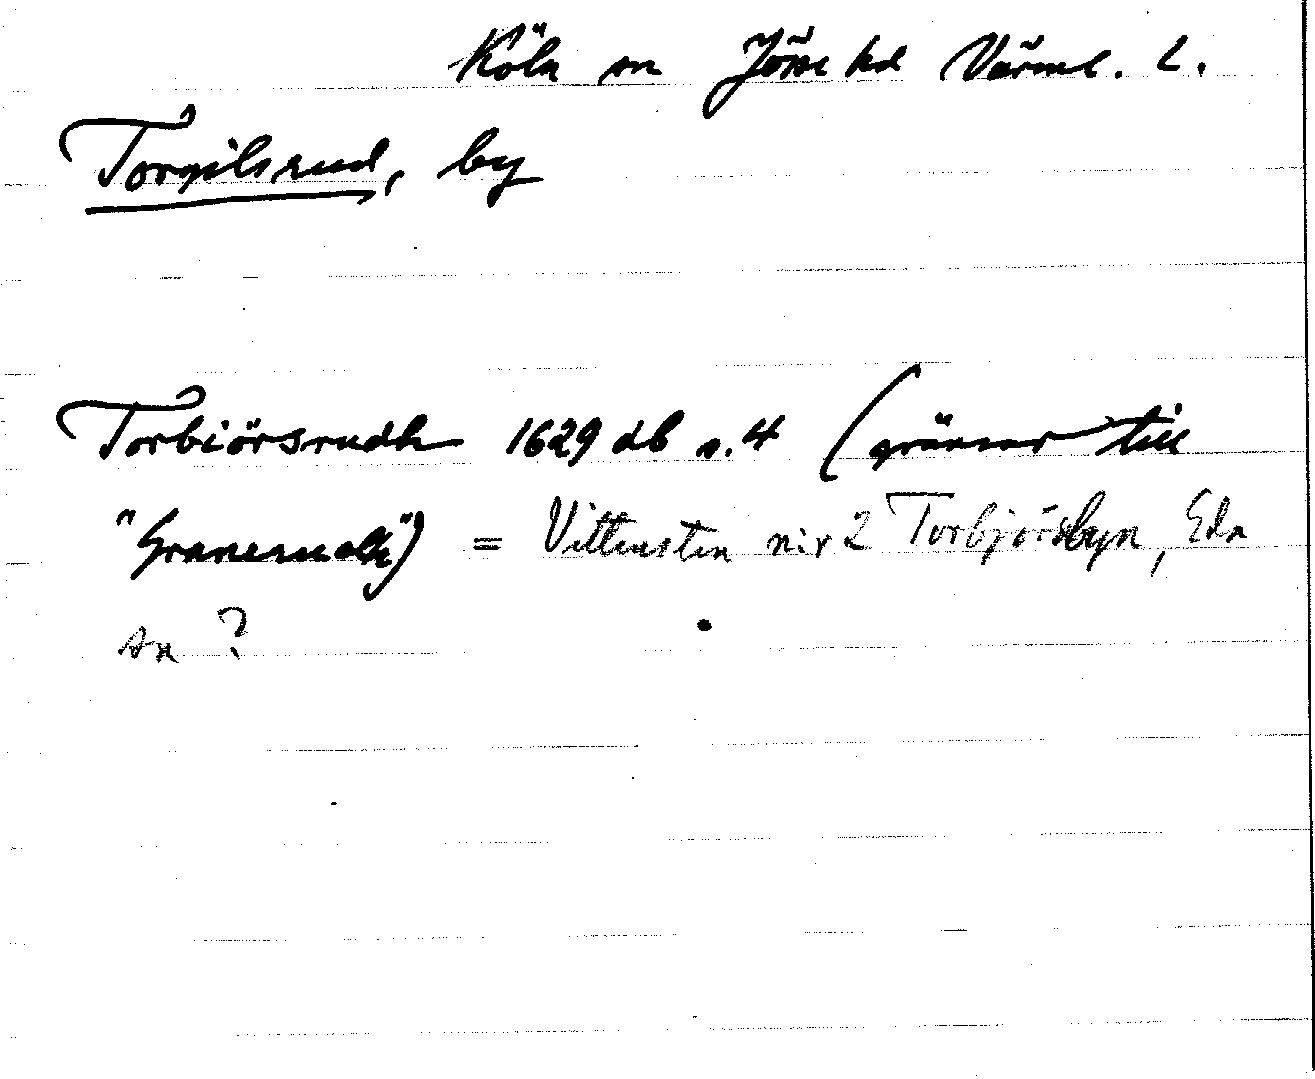 Köla sn Jösse hd Värml. l.
Torgilsrud, by
Torbiörsrudh 1629 db s. 4 (gränsar till
"Graneruelh") = Vittensten nir 2 Torbjörsbyn, Eda
sn ?